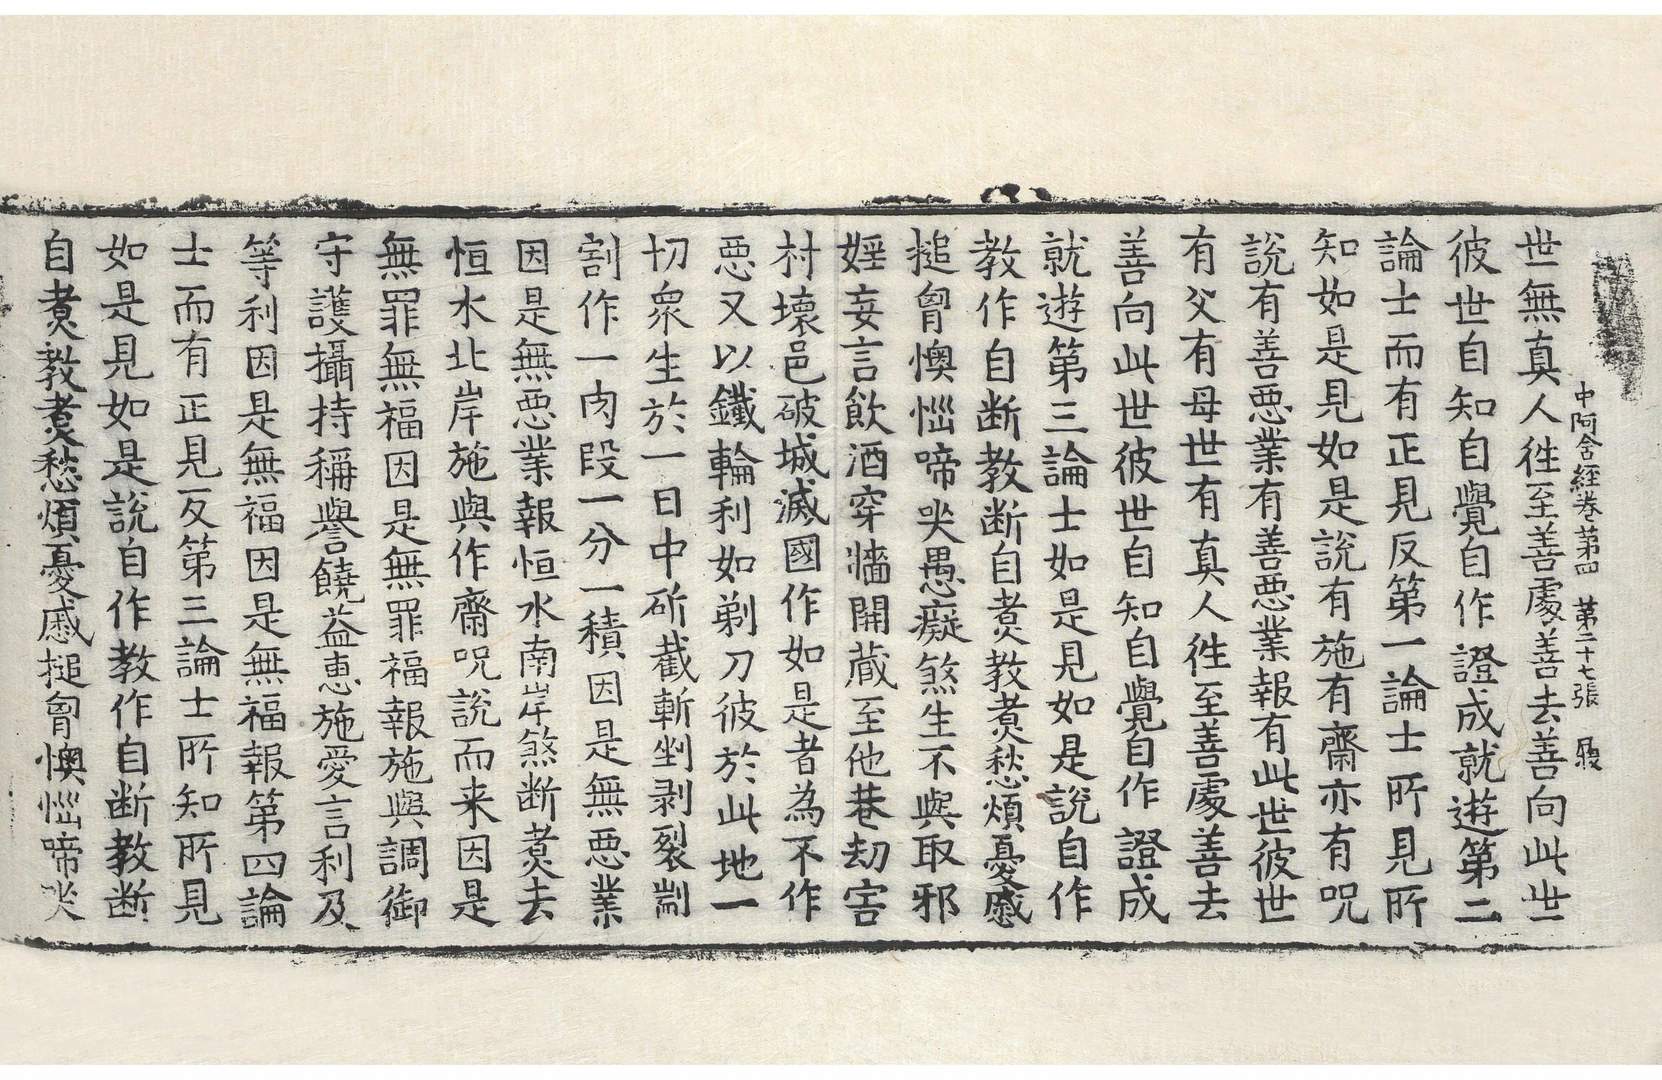 中阿含經卷第四　第二十七張　履
世無真人徃至善處善去善向此世
彼世自知自覺自作證成就遊第二
論士而有正見反第一論士所見所
知如是見如是說有施有齋亦有呪
說有善惡業有善惡業報有此世彼世
有父有母世有真人徃至善處善去
善向此世彼世自知自覺自作證成
就遊第三論士如是見如是說自作
教作自断教断自煑教煑愁煩憂慼
搥𦙄懊惱啼哭愚癡煞生不與取邪
婬妄言飲酒穿牆開藏至他巷劫害
村壞邑破城滅國作如是者為不作
惡又以鐵輪利如剃刀彼於此地一
切衆生於一日中斫截斬剉剥裂剬
割作一肉段一分一積因是無惡業
因是無惡業報恒水南岸煞断煑去
恒水北岸施與作齋呪說而来因是
無罪無福因是無罪福報施與調御
守護攝持稱譽饒益惠施愛言利及
等利因是無福因是無福報第四論
士而有正見反第三論士所知所見
如是見如是說自作教作自断教断
自煑教煑愁煩憂慼搥𦙄懊惱啼哭